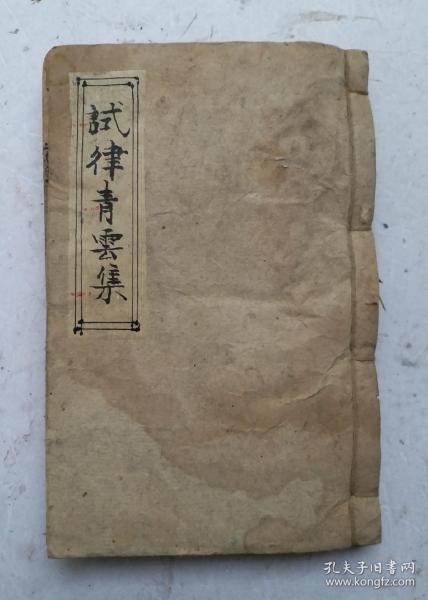 試律青雲集
孔夫子旧书网
www.kongfz.com